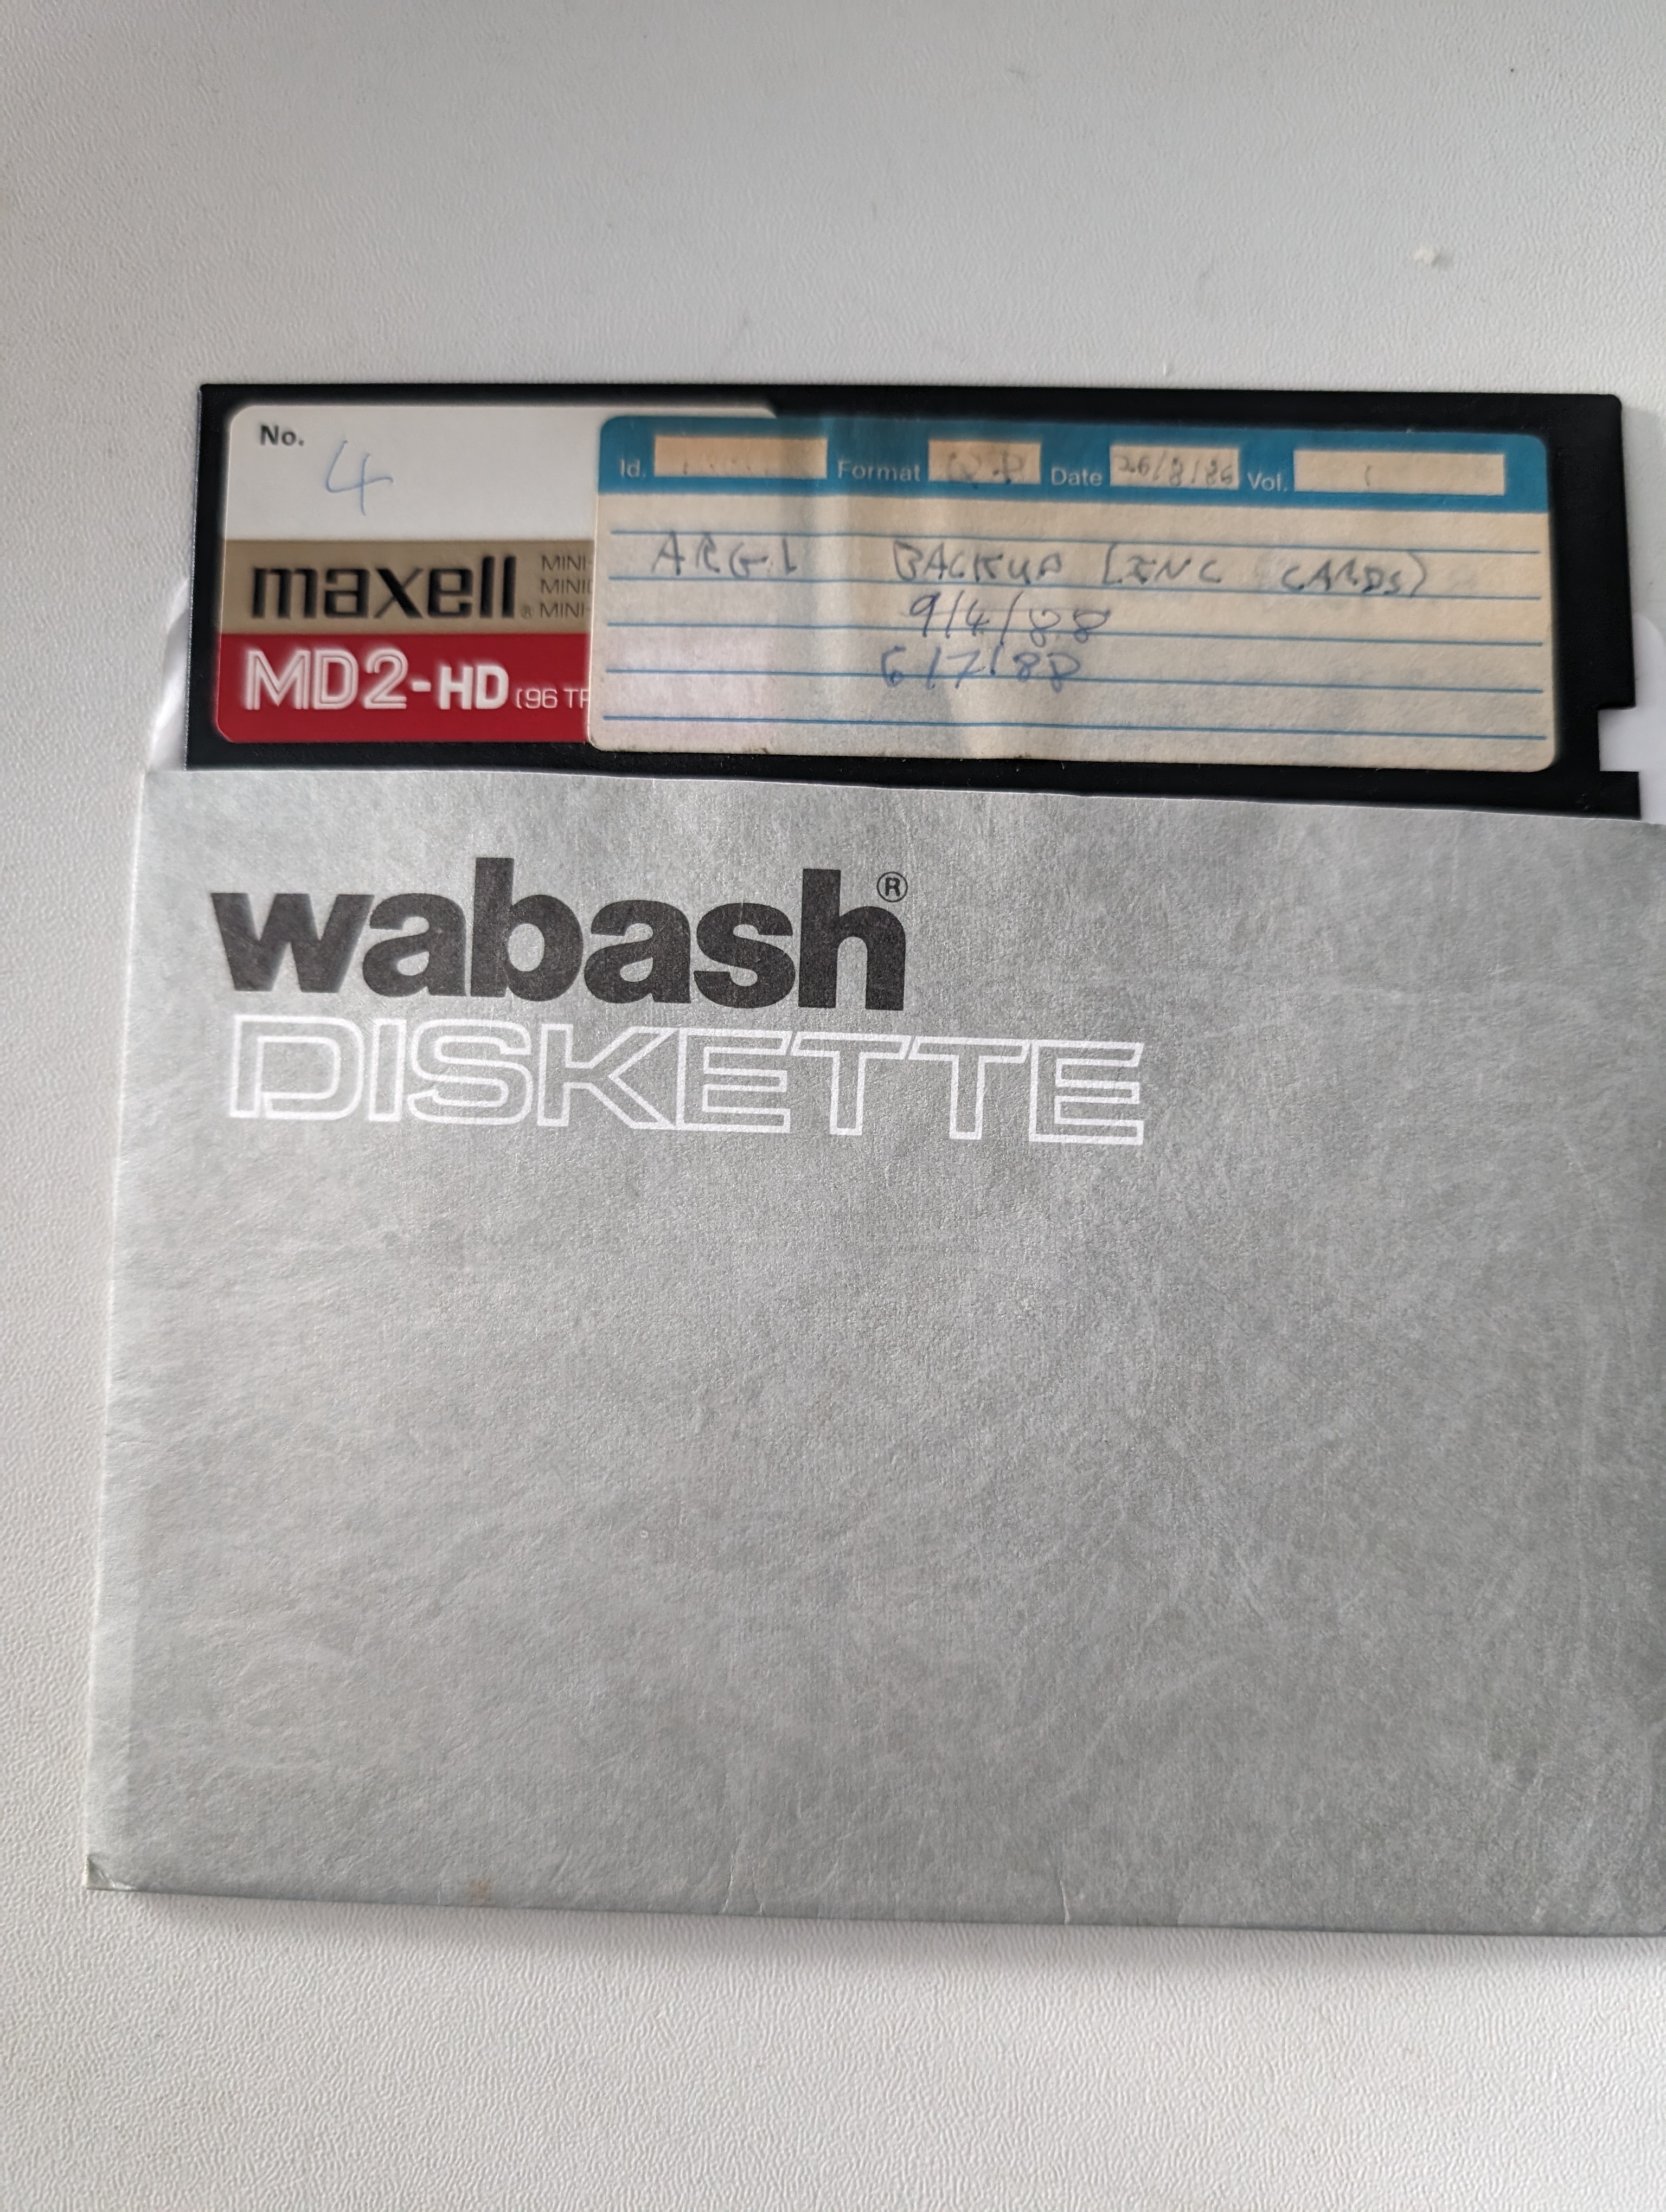 No. 4
maxell®
MINI-
MINI
MINI-
MD2-HD (96 TP
Id. Format Date 26/8/86 Vol. 1
ARG1 BACKUP (INC CARDS)
9/4/88
6/7/88
wabash®
DISKETTE